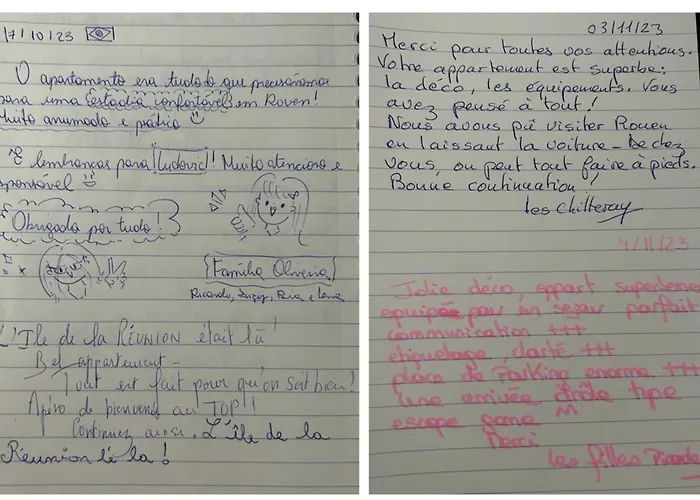 /7/10/23
O apartamento era tudo do que precisávamos
para uma estadia confortável em Roven!
Muito arrumado e prático
E lembranças para Ludovic! Muito atencioso e
sponsável
Obrigada por tudo!
Família Oliveira
Ricardo,
L'Ile de la RÉUNION était là
Bel appartement -
Tout est fait pour qu'on soit bien!
Apéro de bienvenue au TOP!
Continuez ainsi. L'île de la
Réunion lé la!
03/11/23
Merci pour toutes vos attentions.
Votre appartement est superbe:
la déco, les équipements. Vous
avez pensé à tout!
Nous avons pû visiter Rouen
en laissant la voiture - De chez
vous, on peut tout faire à pieds.
Bonne continuation!
les Chilleray
4/11/23
Jolie déco, appart superbement
équipée pour un séjour parfait
communication +++
etiquetage, clarté +++
place de Parking enorme +++
Une arrivée drôle type
escape game ^^
Merci
les filles Picarde